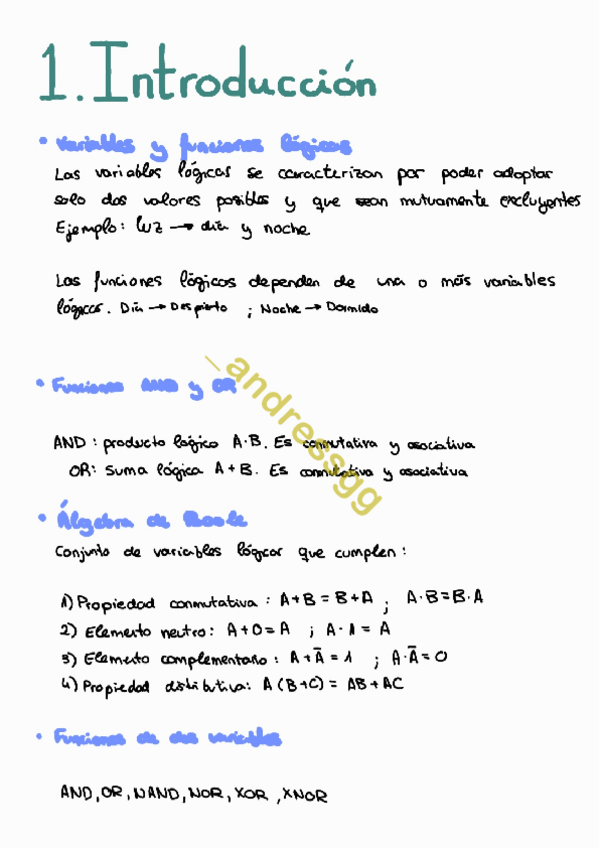 1. Introducción
• Variables y funciones lógicas
Las variables lógicas se caracterizan por poder adoptar
solo dos valores posibles y que sean mutuamente excluyentes
Ejemplo: luz → día y noche
Las funciones lógicas dependen de una o más variables
lógicas. Día → Despierto ; Noche → Dormido
• Funciones AND y OR
AND: producto lógico A·B. Es conmutativa y asociativa
OR: Suma lógica A+B. Es conmutativa y asociativa
_andressgg
• Álgebra de Boole
Conjunto de variables lógicas que cumplen:
1) Propiedad conmutativa: A+B = B+A ; A·B = B·A
2) Elemento neutro: A+0 = A ; A·1 = A
3) Elemento complementario: A+Ā = 1 ; A·Ā = 0
4) Propiedad distributiva: A(B+C) = AB + AC
• Funciones de dos variables
AND, OR, NAND, NOR, XOR, XNOR